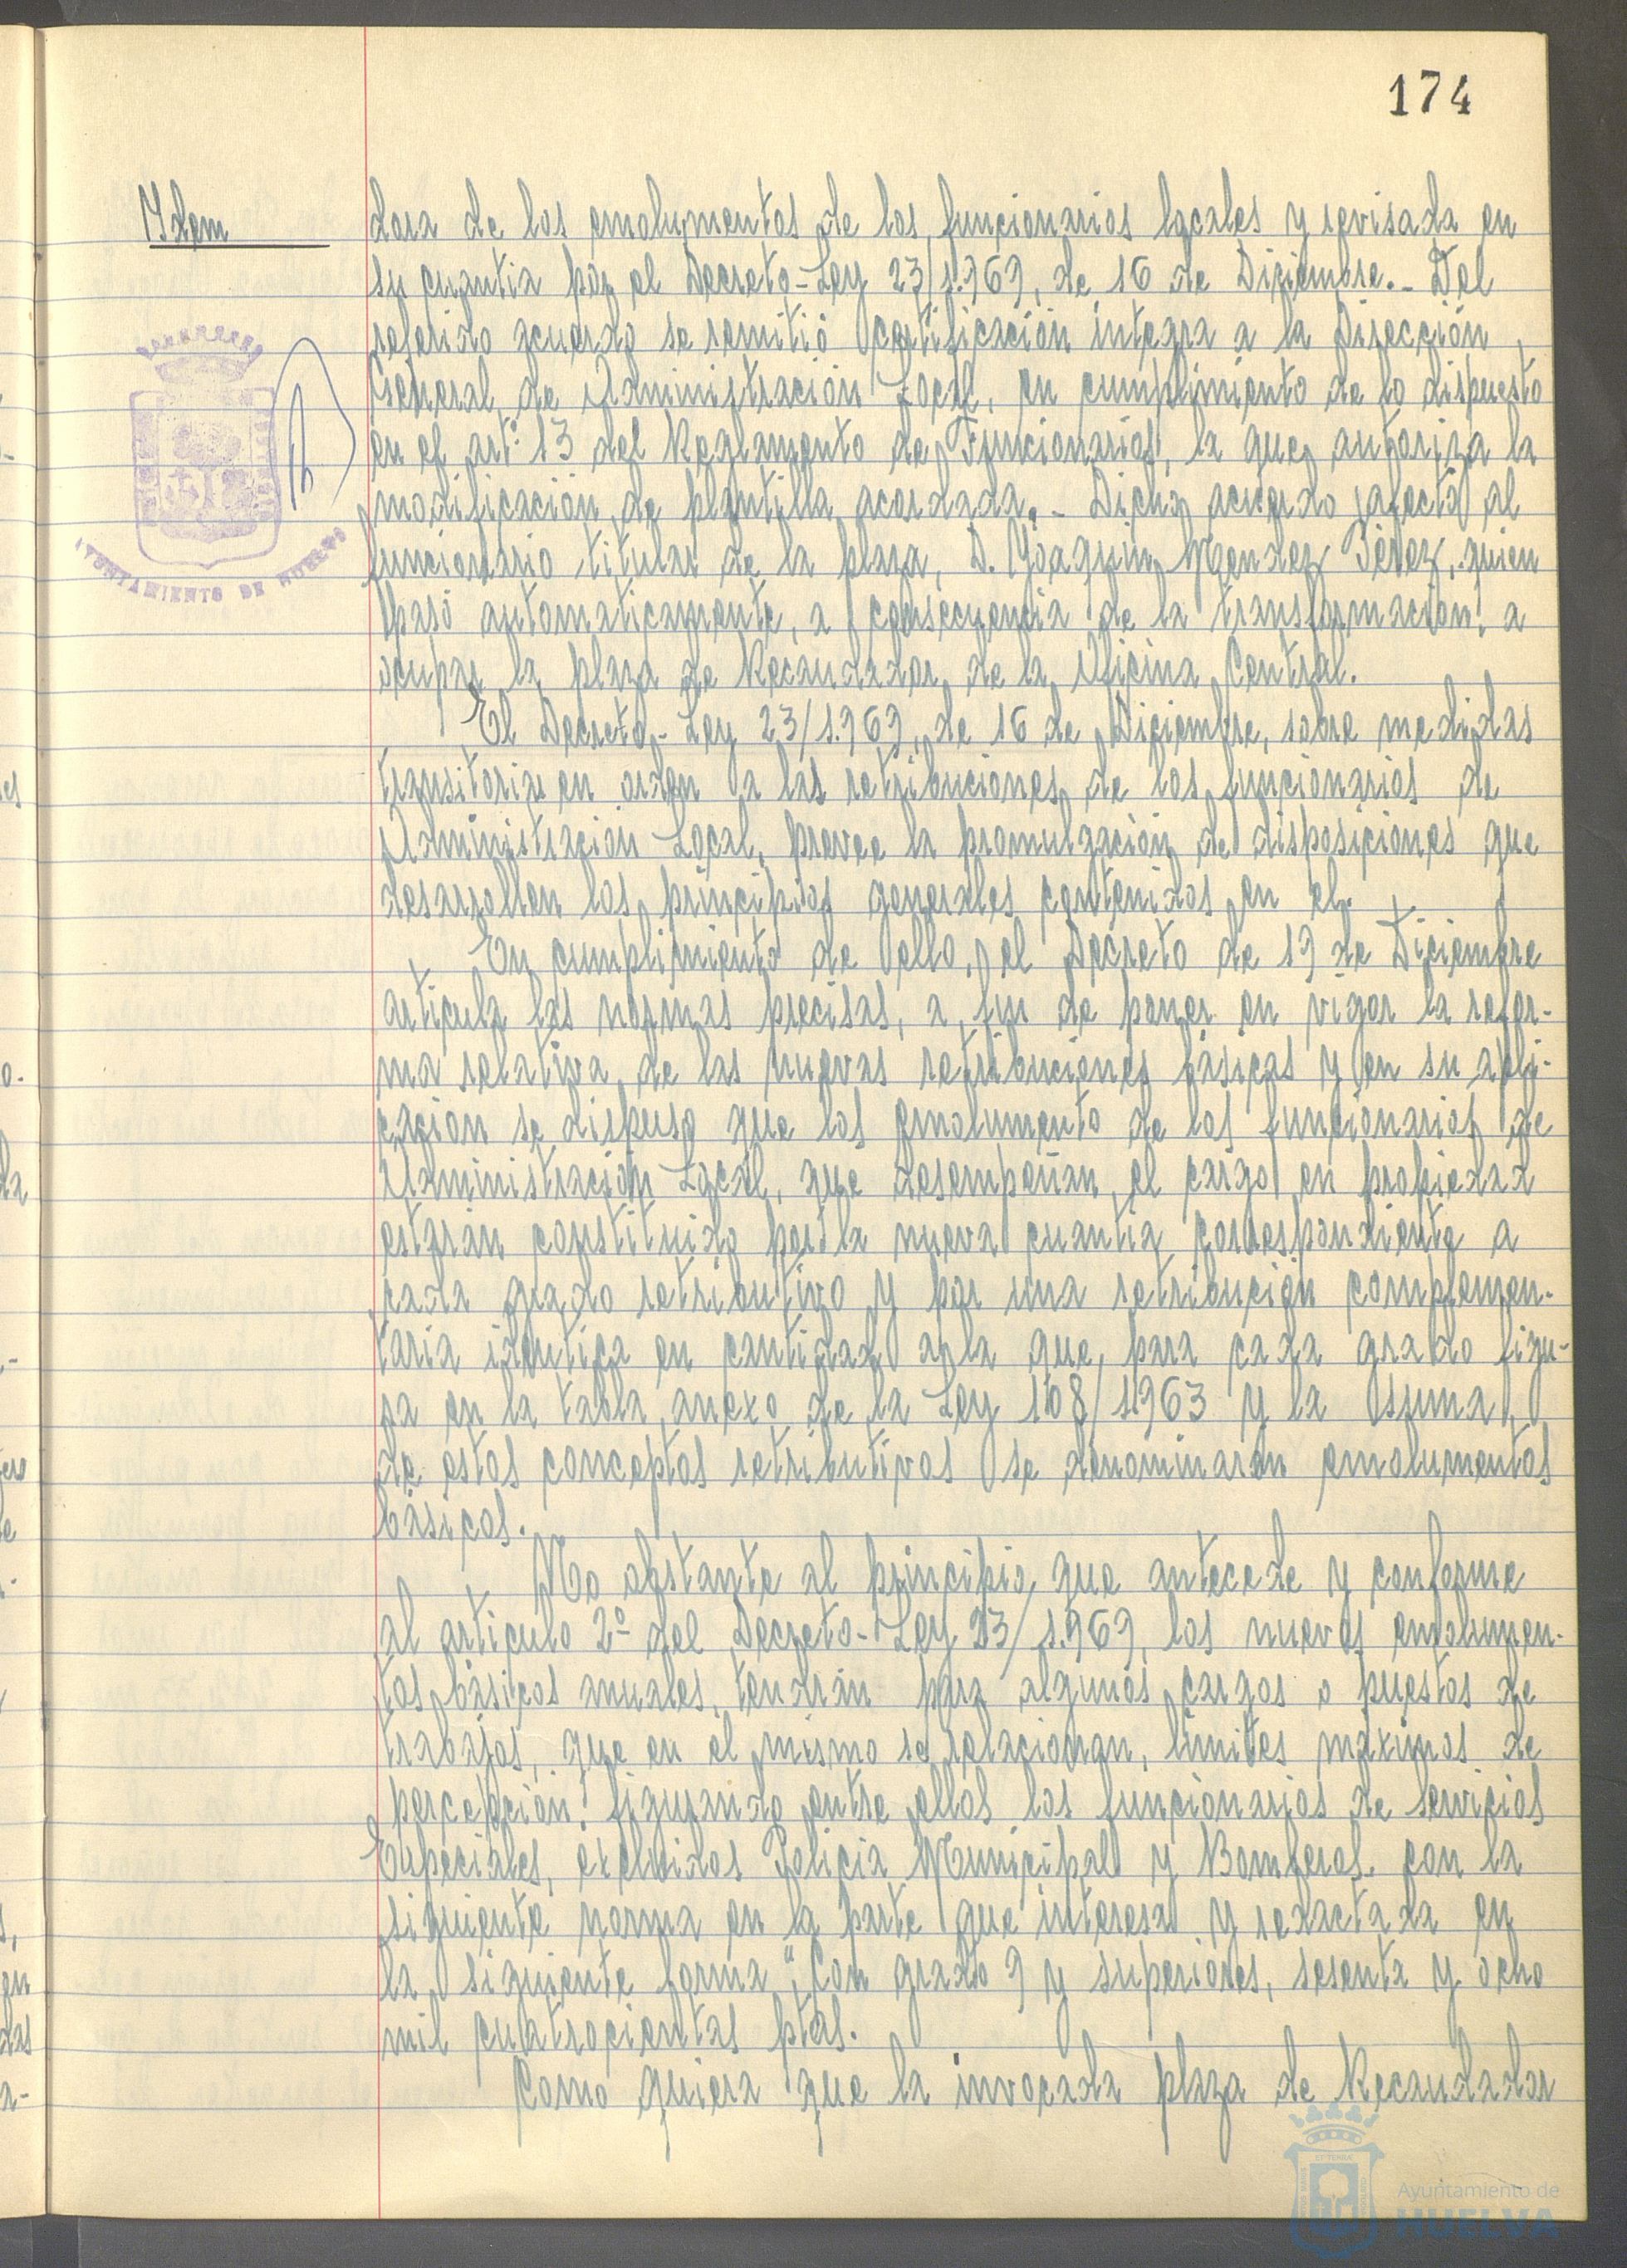 174
Idem
dora de los emolumentos de los funcionarios locales y revisada en
su cuantia por el Decreto-Ley 23/1.969, de 16 de Diciembre.- Del
referido acuerdo se remitió certificación integra a la Dirección
General de Administración Local, en cumplimiento de lo dispuesto
en el artº 13 del Reglamento de Funcionarios, la que autoriza la
modificación de plantilla acordada.- Dicho acuerdo afecta al
funcionario titular de la plaza, D. Joaquin Mendez Pérez, quien
pasó automaticamente, a consecuencia de la transformación, a
ocupar la plaza de Recaudador de la Oficina Central.
El Decreto-Ley 23/1.969, de 16 de Diciembre, sobre medidas
transitorias en orden a las retribuciones de los funcionarios de
Administración Local, prevee la promulgación de disposiciones que
desarrollen los principios generales contenidos en el.
En cumplimiento de ello, el Decreto de 19 de Diciembre
articula las normas precisas, a fin de poner en vigor la refor-
ma relativa de las nuevas retribuciones básicas y en su apli-
cación se dispuso que los emolumento de los funcionarios de
Administración Local, que desempeñan el cargo en propiedad
estarán constituido por la nueva cuantia correspondiente a
cada grado retributivo y por una retribución complemen-
taria identica en cantidad a la que, para cada grado figu-
ra en la tabla anexo de la Ley 108/1963 y la suma
de estos conceptos retributivos se denominarán emolumentos
básicos.
No obstante al principio que antecede y conforme
al articulo 2º del Decreto-Ley 23/1.969, los nuevos emolumen-
tos básicos anuales, tendrán para algunos cargos o puestos de
trabajos, que en el mismo se relacionan, limites máximos de
percepción, figurando entre ellos los funcionarios de Servicios
Especiales, excluidos Policia Municipal y Bomberos, con la
siguiente norma en la parte que interesa y redactada en
la siguiente forma "Con grado 9 y superiores, sesenta y ocho
mil cuatrocientas ptas.
Como quiera que la invocada plaza de Recaudador
AYUNTAMIENTO DE HUELVA
Ayuntamiento de
HUELVA